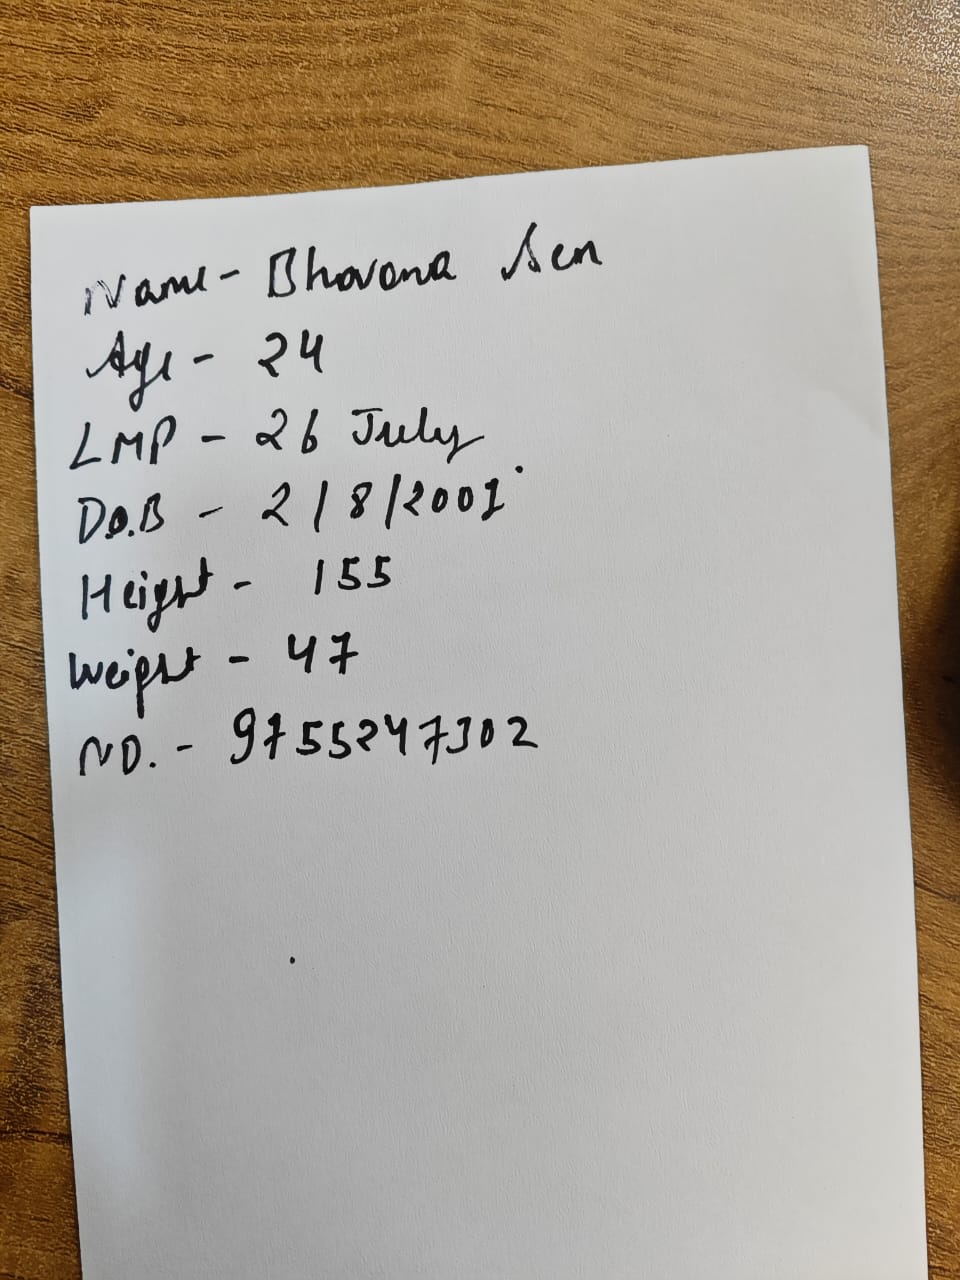 Name - Bhavana Sen
Age - 24
LMP - 26 July
D.O.B - 2/8/2001
Height - 155
Weight - 47
NO. - 9755247302